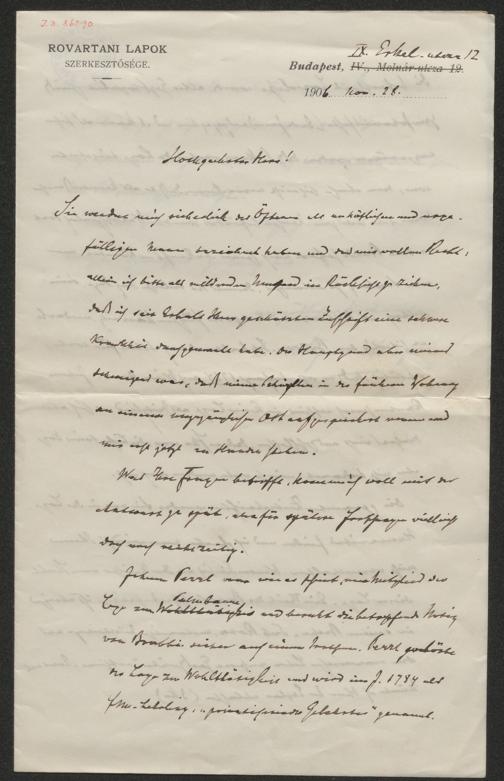 ROVARTANI LAPOK
SZERKESZTŐSÉGE.
IX. Erkel-utcza 12
Budapest, IV., Molnár-utcza 12.
1906 Nov. 28.
Hochgeehrter Herr!
Sie werden mich sicherlich des Öfteren als unhöflichen und unge-
fälligen Mann bezeichnet haben und das mit vollem Recht;
allein ich bitte als mildernden Umstand in Rücksicht zu ziehen,
daß ich seit Erhalt Ihrer geschätzten Zuschrift eine schwere
Krankheit durchgemacht habe. Der Hauptgrund aber meines
war, daß meine in der früheren Wohnung
an einem unzugänglichen Ort aufgespeichert waren und
mir erst jetzt zu Handen stehen.
Was Ihre Fragen betrifft, komme ich wohl mit der
Antwort zu spät, aber für spätere vielleicht
doch noch rechtzeitig.
Johann war wie es scheint, ein Mitglied der
Loge zum Palmbaum Wohlthätigkeit und beruht die betreffende Notiz
von sicher auf einem Irrthum. gehörte
der Loge zur Wohltätigkeit und wird im J. 1784 als
"privatisirender Gelehrter" genannt.